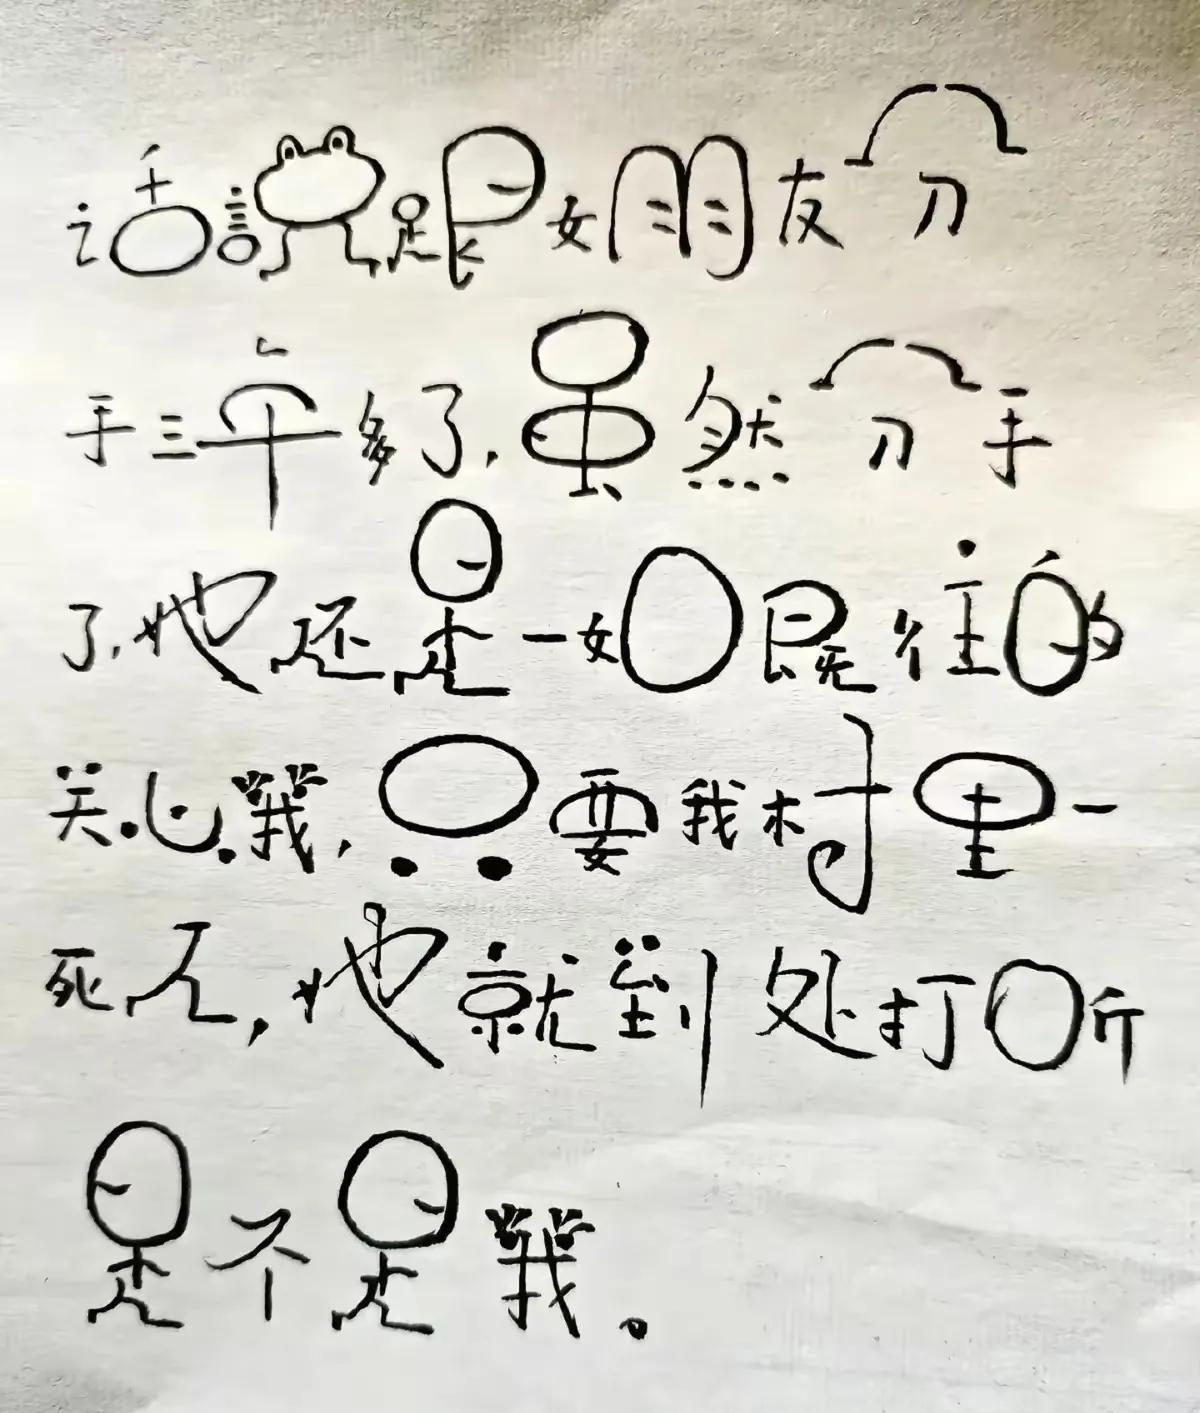 话說跟女朋友分
手三年多了,虽然分手
了,她还是一如既往的
关心我,只要我村里一
死人,她就到处打听
是不是我。